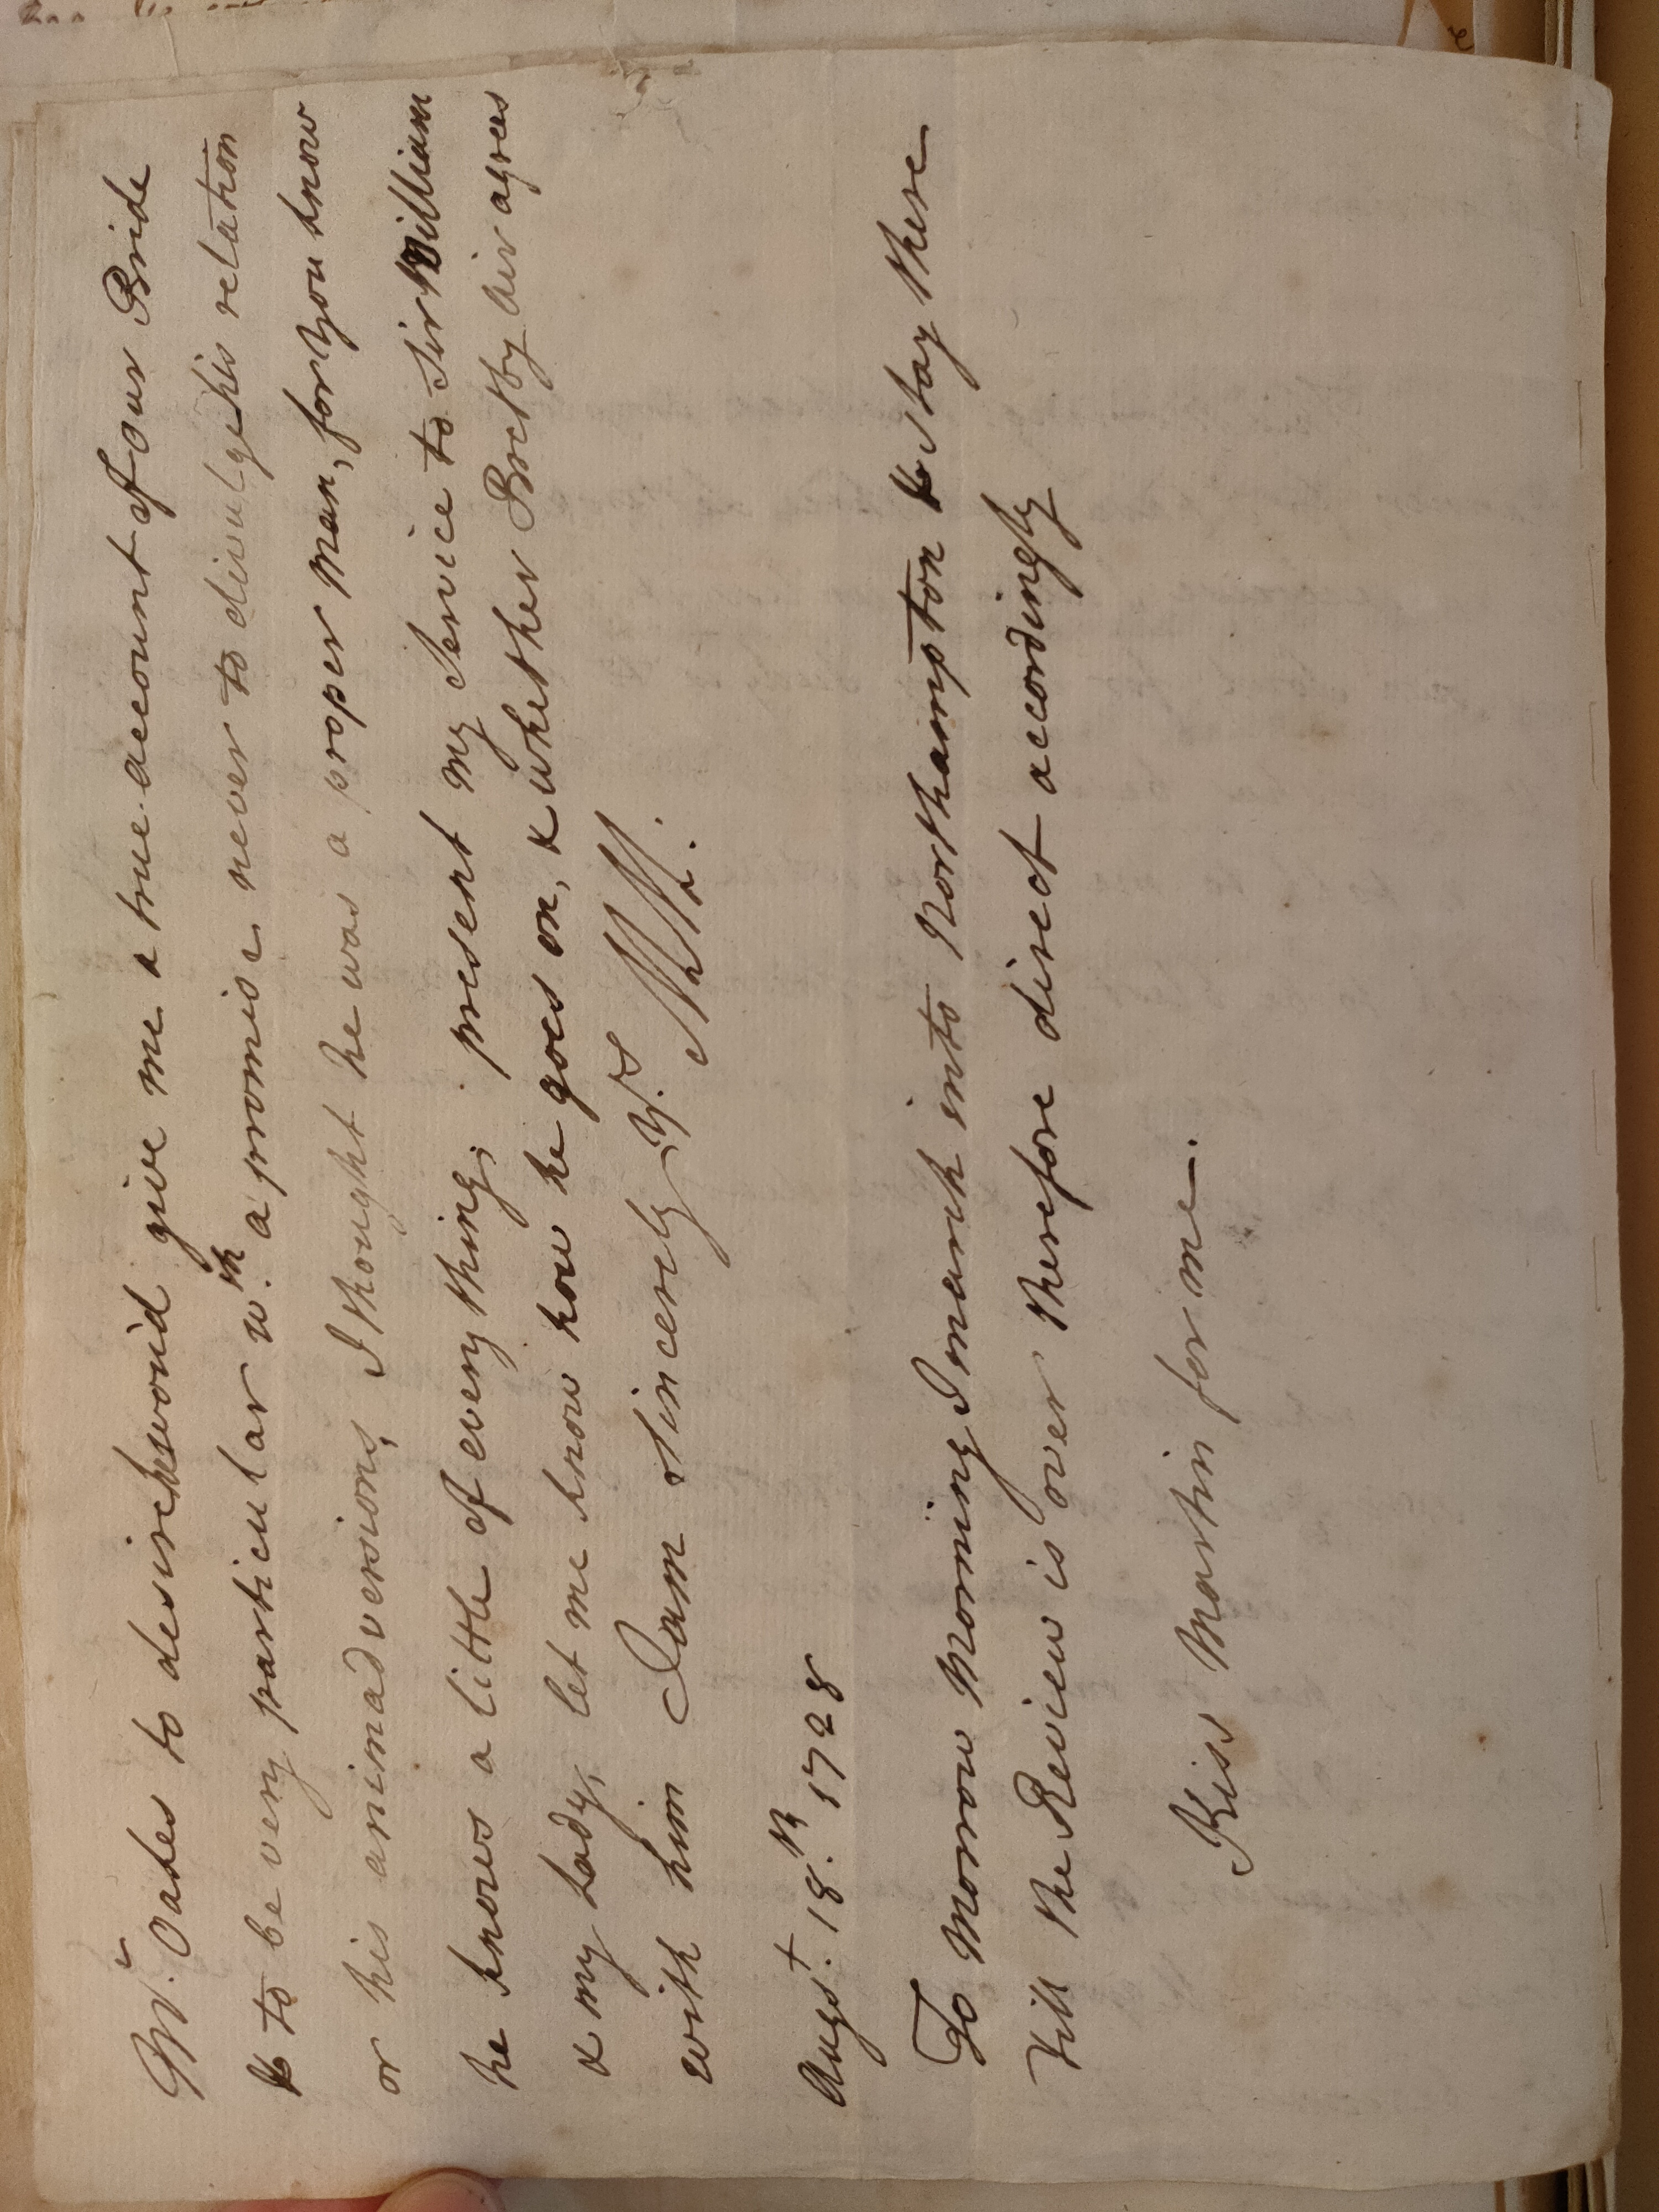 Mr. Oates to desire he wou'd give me a true account of our Bride
& to be very particular wth. a promise never to divulge his relation
or his animadversions, I thought he was a proper man, for you know
he knows a little of every thing; present my Service to Sir William
& my Lady, let me know how he goes on, & whether Pretty air agrees
with him I am Sincerely Yrs. MM:
Augst. 18th. 1728
To morrow morning I march into Northampton & stay there
till the Review is over therefore direct accordingly
Kiss Martin for me.